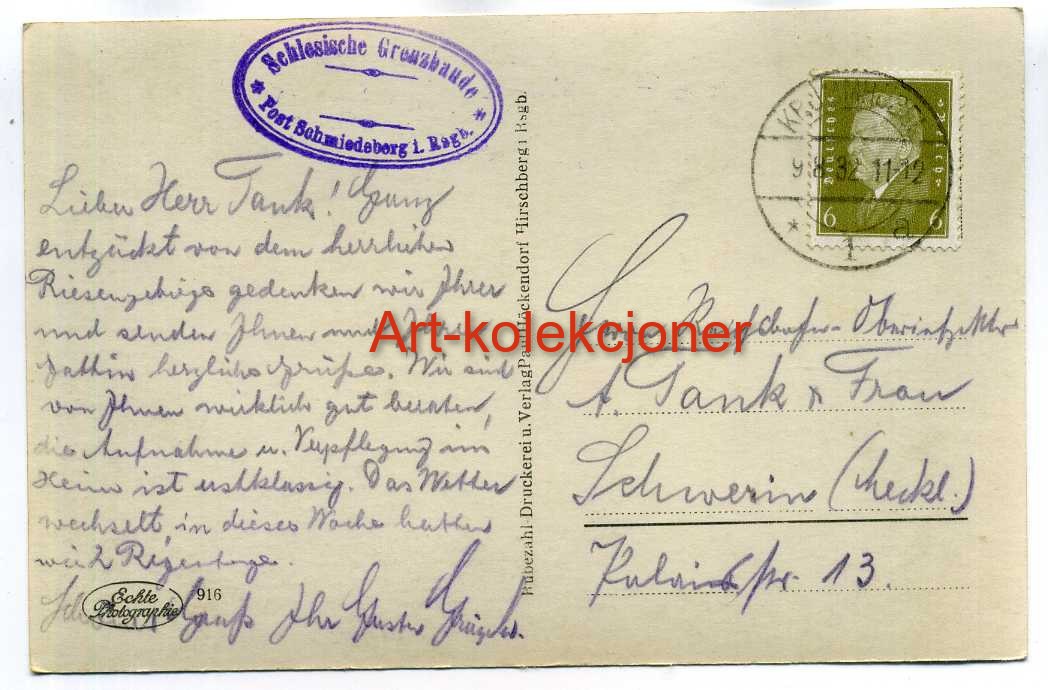 Schlesische Grenzbaude
* Post Schmiedeberg i. Rsgb. *
Lieber Herr Tank! Ganz
entzückt von dem herrlichen
Riesengebirge gedenken wir Ihrer
und senden Ihnen und Ihrer
Gattin herzliche Grüße. Wir sind
von Ihnen wirklich gut beraten,
die Aufnahme u. Verpflegung im
Heim ist erstklassig. Das Wetter
wechselt, in dieser Woche hatten
wir 2 Regentage.
Gruß Ihr Gustav
Echte
Photographie
916
Rübezahl-Druckerei u. Verlag Paul Höckendorf Hirschberg i Rsgb.
Deutsches Reich
6 6
9.8.32. 11-12
* 1 a
Herrn Reichsbahn-Oberinspektor
A. Tank & Frau
Schwerin (Meckl.)
13.
Art-kolekcjoner